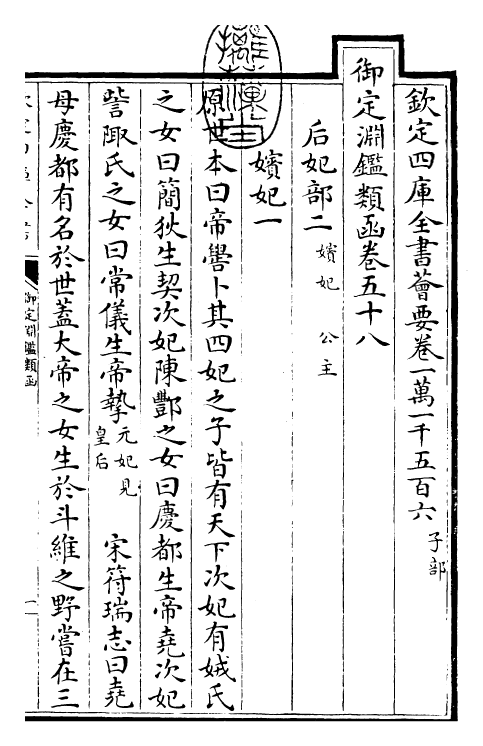 欽定四庫全書薈要卷一萬一千五百六 子部
御定淵鑑類函卷五十八
后妃部二 嬪妃 公主
嬪妃一
原世本曰帝嚳卜其四妃之子皆有天下次妃有娀氏
之女曰簡狄生契次妃陳酆之女曰慶都生帝堯次妃
訾陬氏之女曰常儀生帝摯元妃見皇后 宋符瑞志曰堯
母慶都有名於世蓋大帝之女生於斗維之野嘗在三
御定淵鑑類函